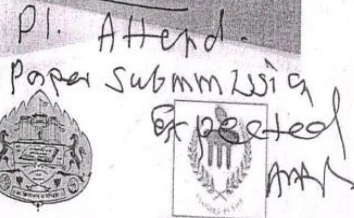 Pl. Attend.
Paper submmission
Expected